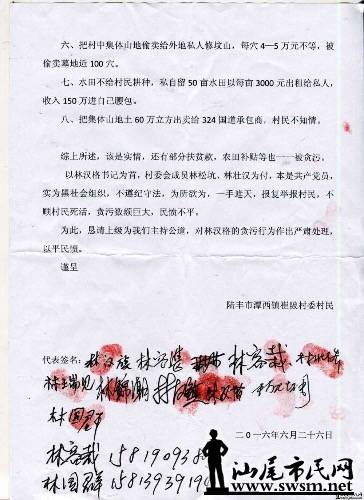 六、把村中集体山地偷卖给外地私人修坟山，每穴 4—5 万元不等，被
偷卖墓地近 100 穴。
七、水田不给村民耕种，私自留 50 亩水田以每亩 3000 元出租给私人，
收入 150 万进自己腰包。
八、把集体山地土 60 万立方出卖给 324 国道承包商，村民不知情。
综上所述，该是实情，还有部分扶贫款，农田补贴等也一一被贪污。
以林汉格书记为首，村委会成员林松坑，林壮汉为付，本是共产党员，
实为黑社会组织，不遵纪守法，为所欲为，一手遮天，报复举报村民，不
顾村民死活，贪污数额巨大，民愤不平。
为此，恳请上级为我们主持公道，对林汉格的贪污行为作出严肃处理，
以平民愤。
谨呈
陆丰市潭西镇崔陂村委村民
代表签名：
林容裁
林国群
二〇一六年六月二十六日
林容裁
林国群
汕尾市民网
www.swsm.net